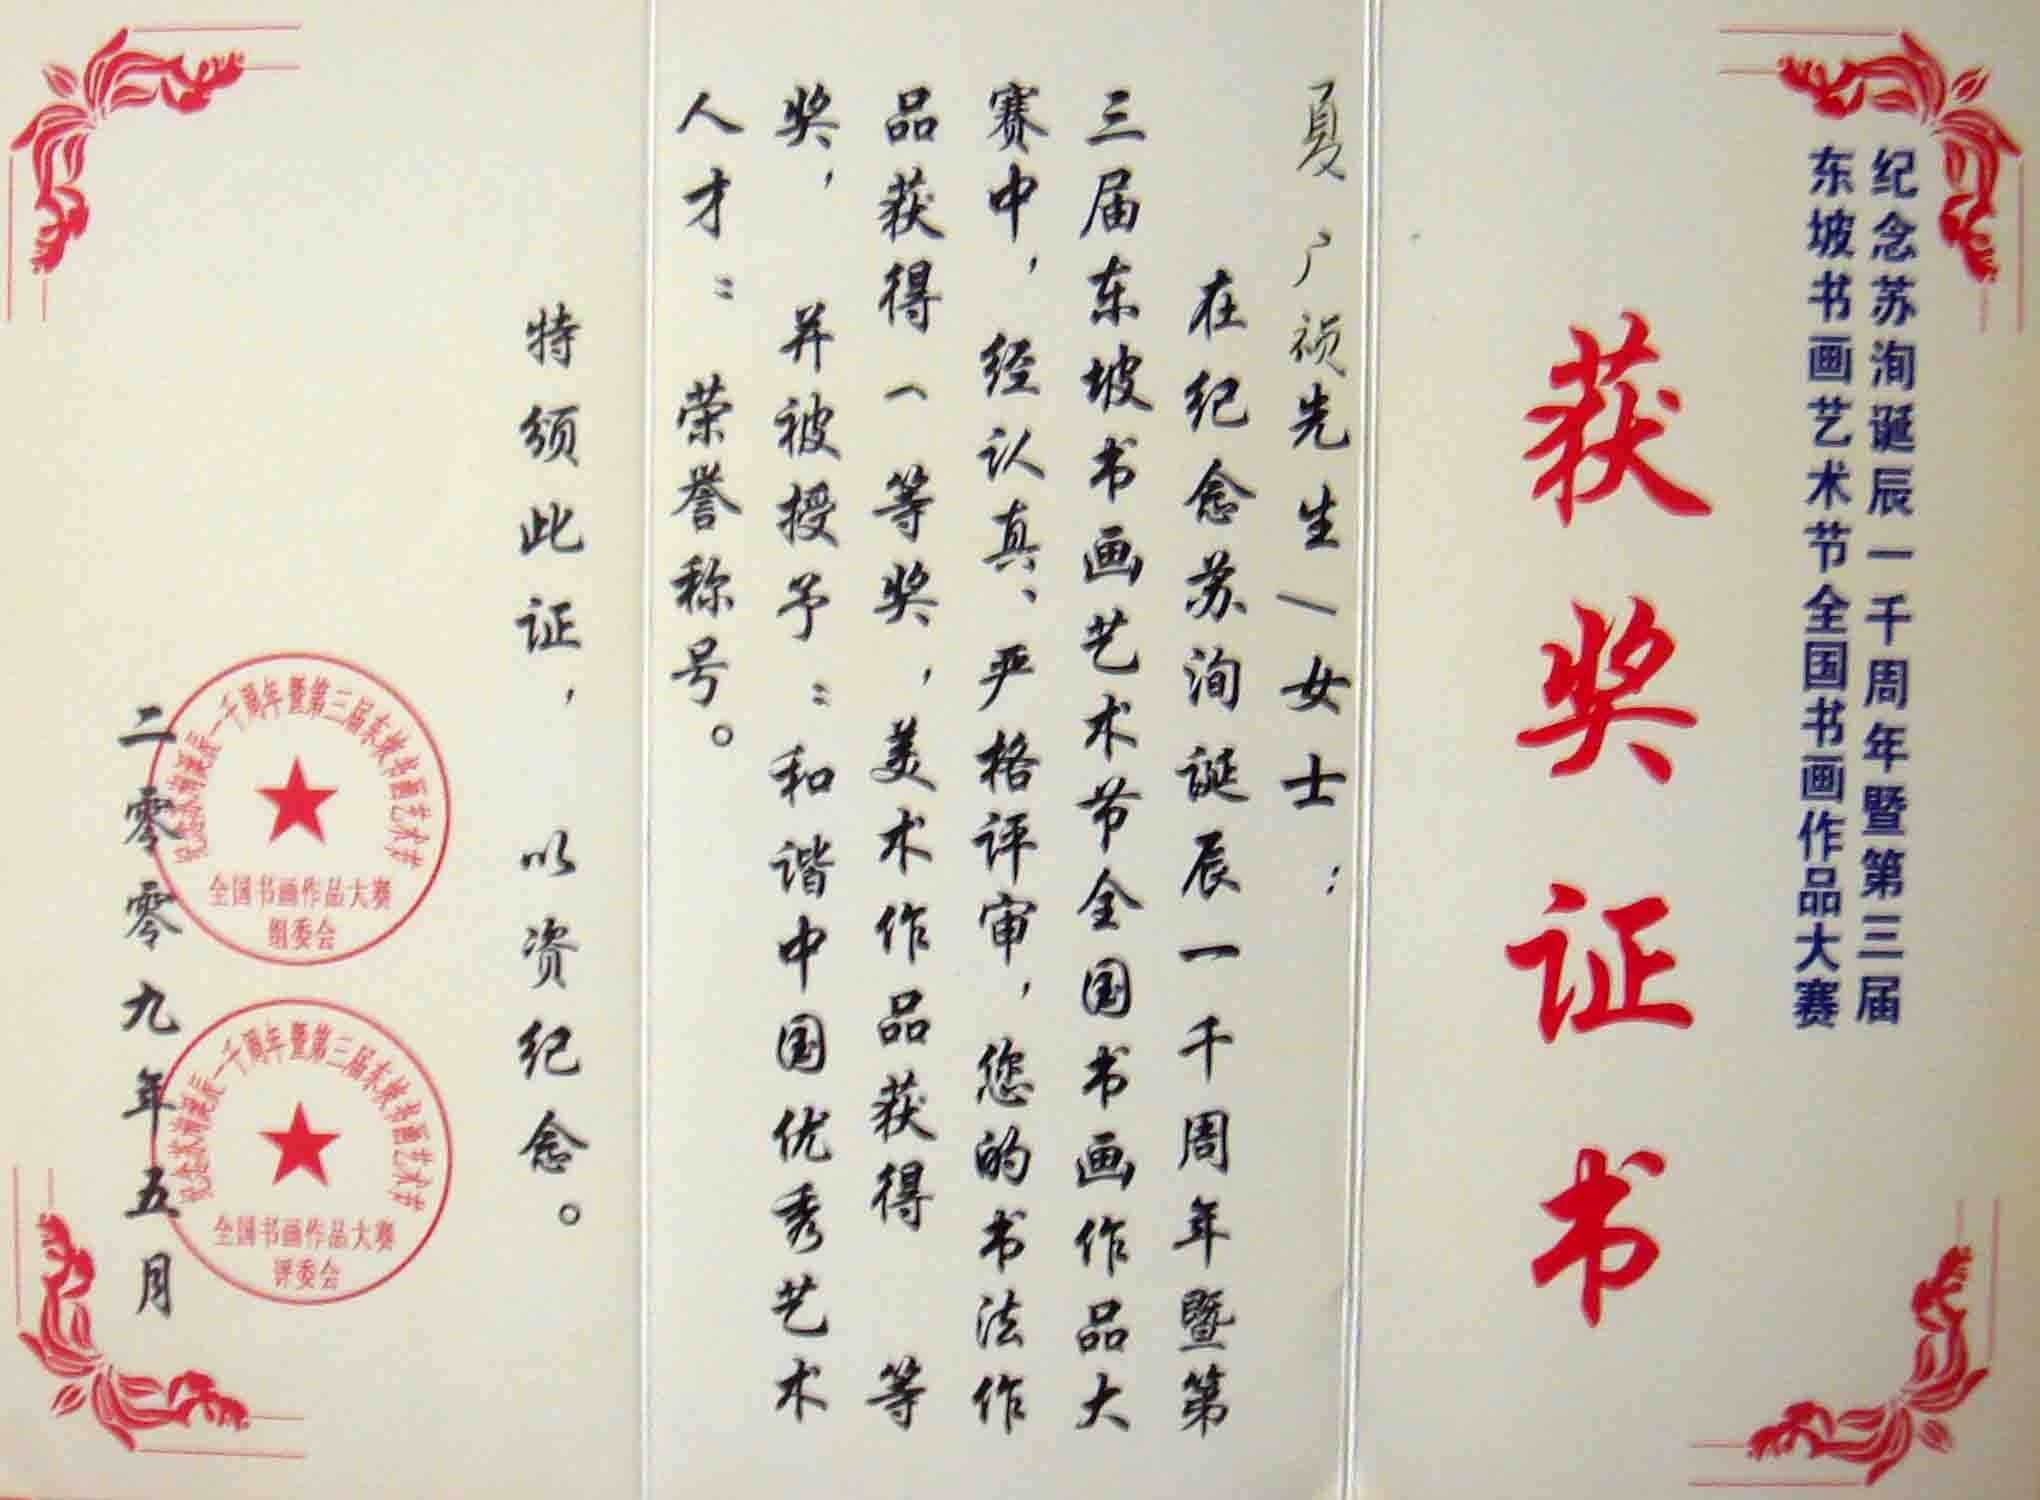 纪念苏洵诞辰一千周年暨第三届
东坡书画艺术节全国书画作品大赛
获奖证书
夏广祯先生/女士：
在纪念苏洵诞辰一千周年暨第
三届东坡书画艺术节全国书画作品大
赛中，经认真、严格评审，您的书法作
品获得一等奖，美术作品获得 等
奖， 并被授予：和谐中国优秀艺术
人才： 荣誉称号。
特颁此证， 以资纪念。
二零零九年五月
纪念苏洵诞辰一千周年暨第三届东坡书画艺术节
全国书画作品大赛
组委会
纪念苏洵诞辰一千周年暨第三届东坡书画艺术节
全国书画作品大赛
评委会